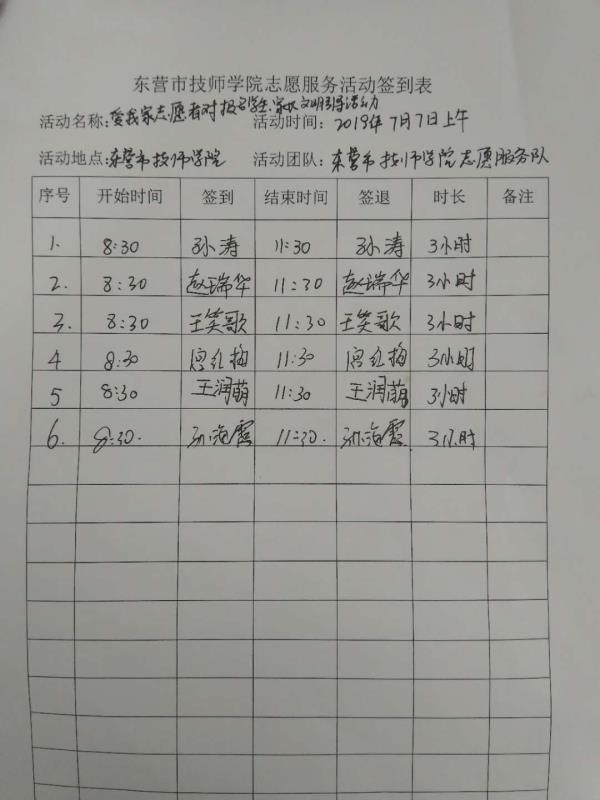 东营市技师学院志愿服务活动签到表
活动名称:爱我家志愿者对报名学生、家长文明引导活动 活动时间:2019年7月7日上午
活动地点:东营市技师学院 活动团队:东营市技师学院志愿服务队
序号 开始时间 签到 结束时间 签退 时长 备注
1. 8:30 孙涛 11:30 孙涛 3小时
2. 8:30 赵瑞华 11:30 赵瑞华 3小时
3. 8:30 王笑歌 11:30 王笑歌 3小时
4 8:30 红梅 11:30 红梅 3小时
5 8:30 王润萌 11:30 王润萌 3小时
6. 8:30. 孙海霞 11:30. 孙海霞 3小时